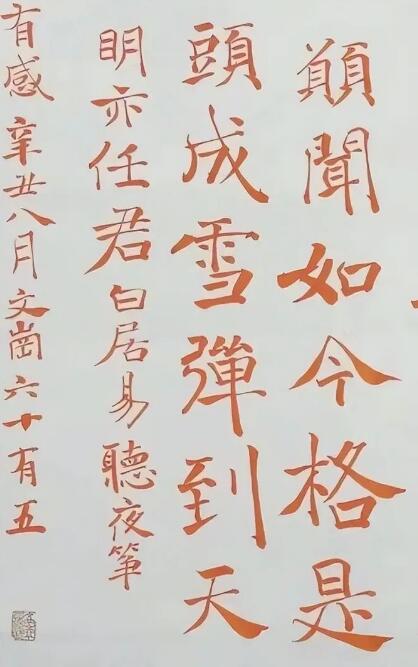 願聞如今格是
頭成雪彈到天
明亦任君白居易聽夜筝
有感辛丑八月文崗六十有五